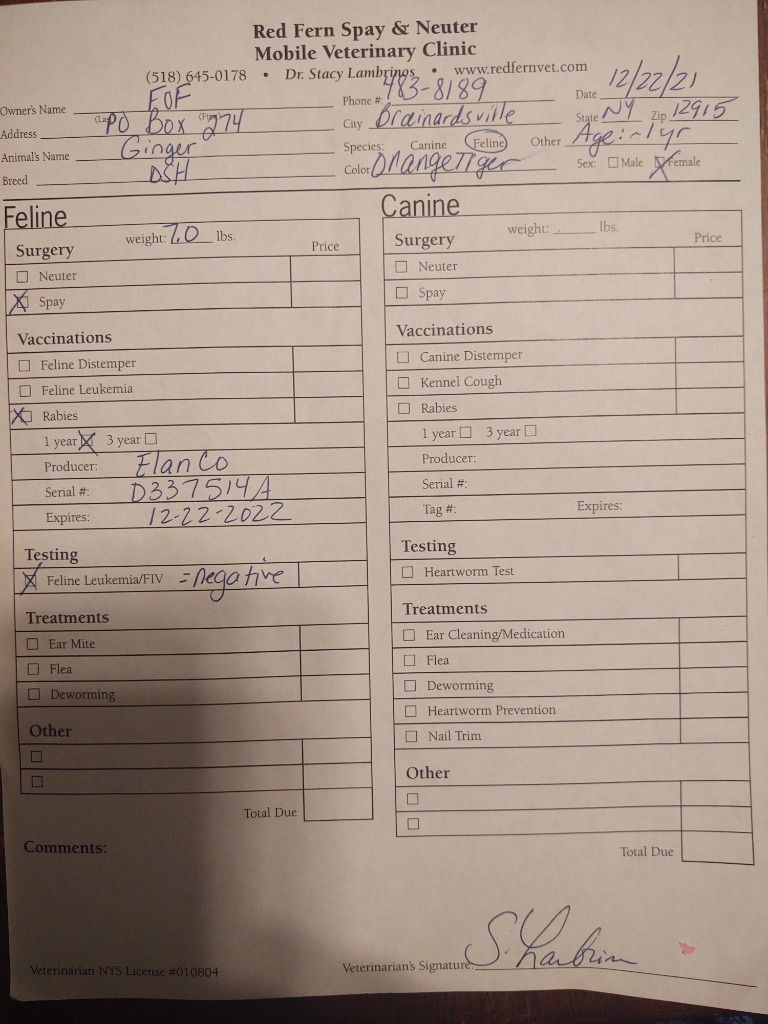 Red Fern Spay & Neuter
Mobile Veterinary Clinic
(518) 645-0178 • Dr. Stacy Lambrinos • www.redfernvet.com
Owner's Name EOF (Last) (First) Phone # 483-8189 Date 12/22/21
Address PO Box 274 City Brainardsville State NY Zip 12915
Animal's Name Ginger Species: Canine Feline Other Age: ~1yr
Breed DSH Color Orange Tiger Sex: Male Female
Feline
Surgery weight: 7.0 lbs. Price
Neuter
Spay
Vaccinations
Feline Distemper
Feline Leukemia
Rabies
1 year 3 year
Producer: Elanco
Serial #: D337514A
Expires: 12-22-2022
Testing
Feline Leukemia/FIV = negative
Treatments
Ear Mite
Flea
Deworming
Other
Total Due
Comments:
Canine
Surgery weight: lbs. Price
Neuter
Spay
Vaccinations
Canine Distemper
Kennel Cough
Rabies
1 year 3 year
Producer:
Serial #:
Tag #: Expires:
Testing
Heartworm Test
Treatments
Ear Cleaning/Medication
Flea
Deworming
Heartworm Prevention
Nail Trim
Other
Total Due
Veterinarian NYS License #010804 Veterinarian's Signature: S. Lambrin